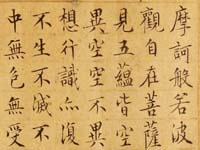 摩訶般若波
觀自在菩薩
見五蘊皆空
異空空不異
想行識亦復
不生不滅不
中無色無受